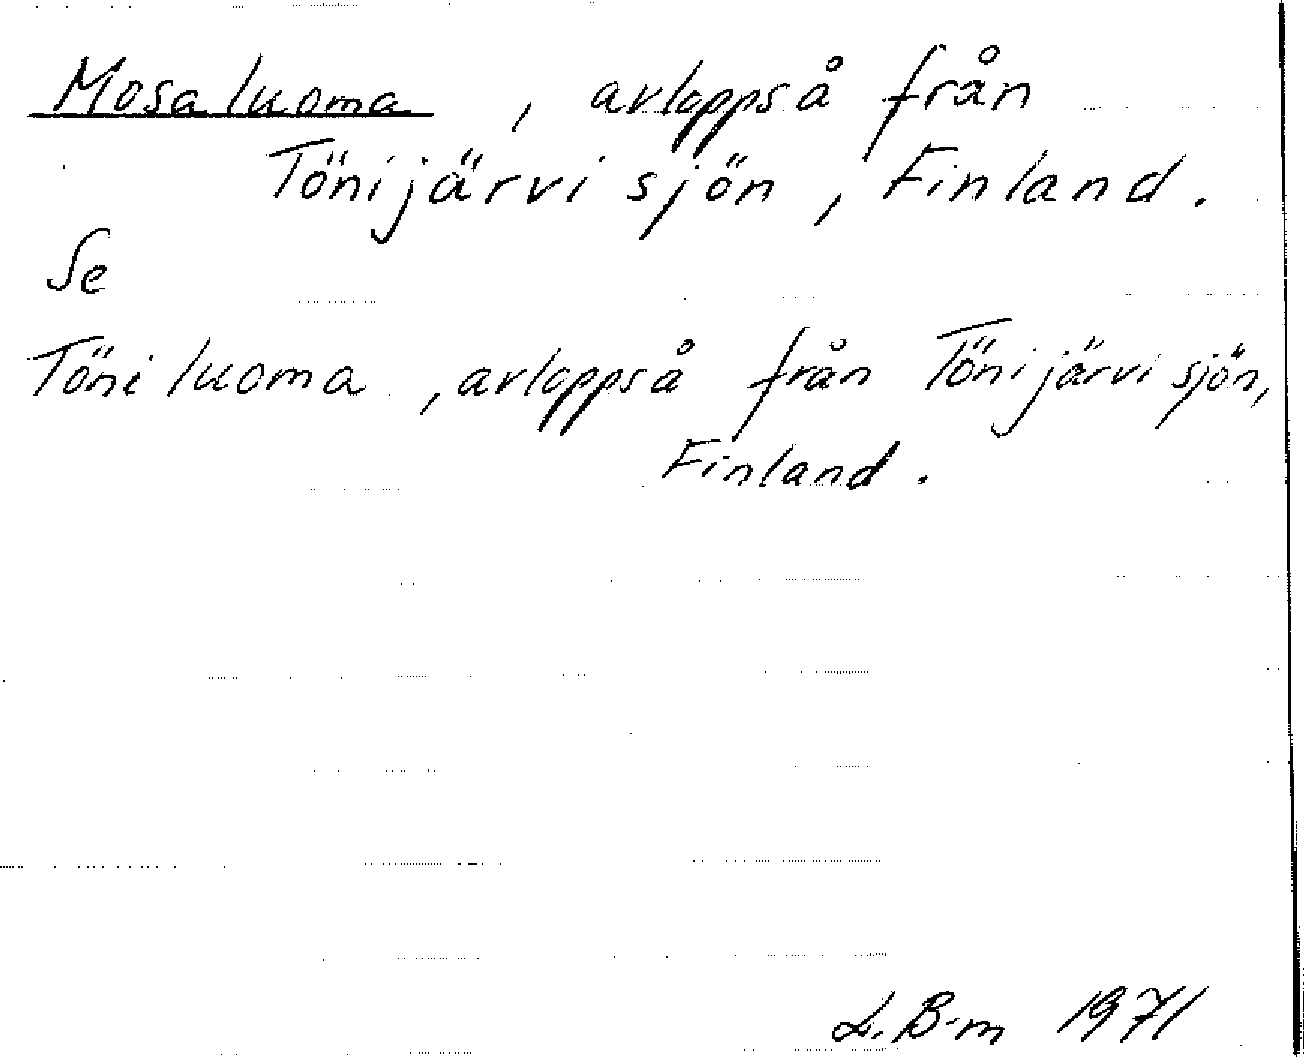 Mosaluoma, avloppså från
Tönijärvi sjön, Finland.
Se
Töniluoma, avloppså från Tönijärvi sjön,
Finland.
L. B-m 1971